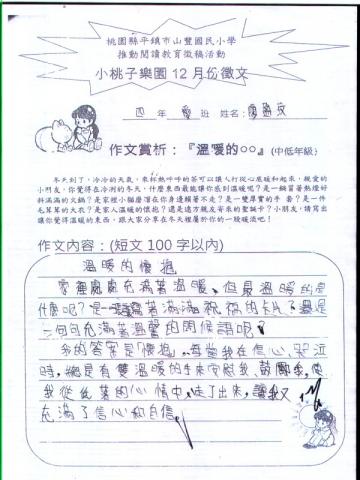 桃園縣平鎮市山豐國民小學
推動閱讀教育徵稿活動
小桃子樂園12月份徵文
四年愛班 姓名:
作文賞析:『溫暖的○○』(中低年級)
冬天到了,冷冷的天氣,來杯熱呼呼的茶可以讓人打從心底暖和起來,親愛的
小朋友,你覺得在冷冽的冬天,什麼東西最能讓你感到溫暖呢?是一鍋冒著熱煙好
料滿滿的火鍋?是家裡小貓磨蹭在你身邊賴著不走?是一雙厚實的手套?是一件
毛茸茸的大衣?是家人溫暖的懷抱?還是遠方親友寄來的聖誕卡?小朋友,請寫出
讓你覺得溫暖的東西,跟大家分享在冬天裡屬於你的一股暖流吧!
作文內容:(短文100字以內)
溫暖的懷抱
家裡處處充滿著溫暖、但最溫暖的是
什麼呢?是一張寫著滿滿祝福的卡片?還是
一句句充滿著溫馨的問候語呢?
我的答案是「懷抱」,每當我在傷心、哭泣
時,總是有雙溫暖的手來安慰我、鼓勵我,使
我從低落的心情中,走了出來,讓我又
充滿了信心和自信。